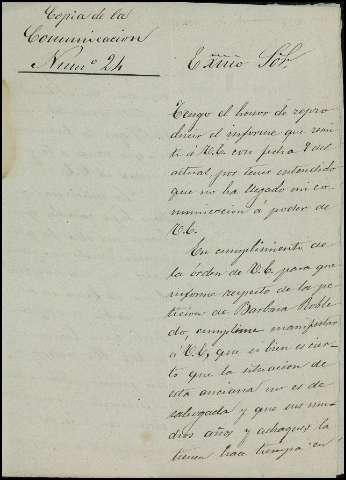 Copia de la
Comunicacion
Num.º 24
Exmo Sõr,
Tengo el honor de repro
ducir el informe que remi
ti á V.E. con fecha 2 del
actual, por tener entendido
que no ha llegado mi co
municacion á poder de
V.E.
En cumplimiento de
la órden de V.E. para que
informe respecto de la pe
ticion de Barbara Roble
do, cumpleme manifestar
á V.E, que si bien es cier
to que la situacion de
esta anciana no es de
sahogada y que sus
años y achaques la
tienen hace tiempo en